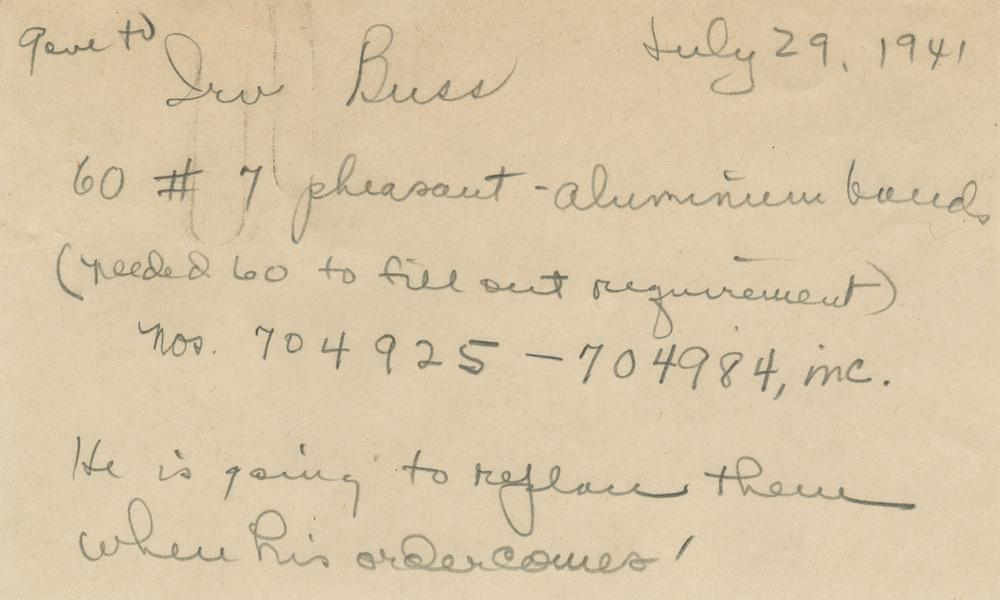 gave to Irv Buss July 29, 1941
60 # 7 pheasant - aluminium bands
(needed 60 to fill out requirement)
Nos. 704925 - 704984, inc.
He is going to replace them
when his order comes